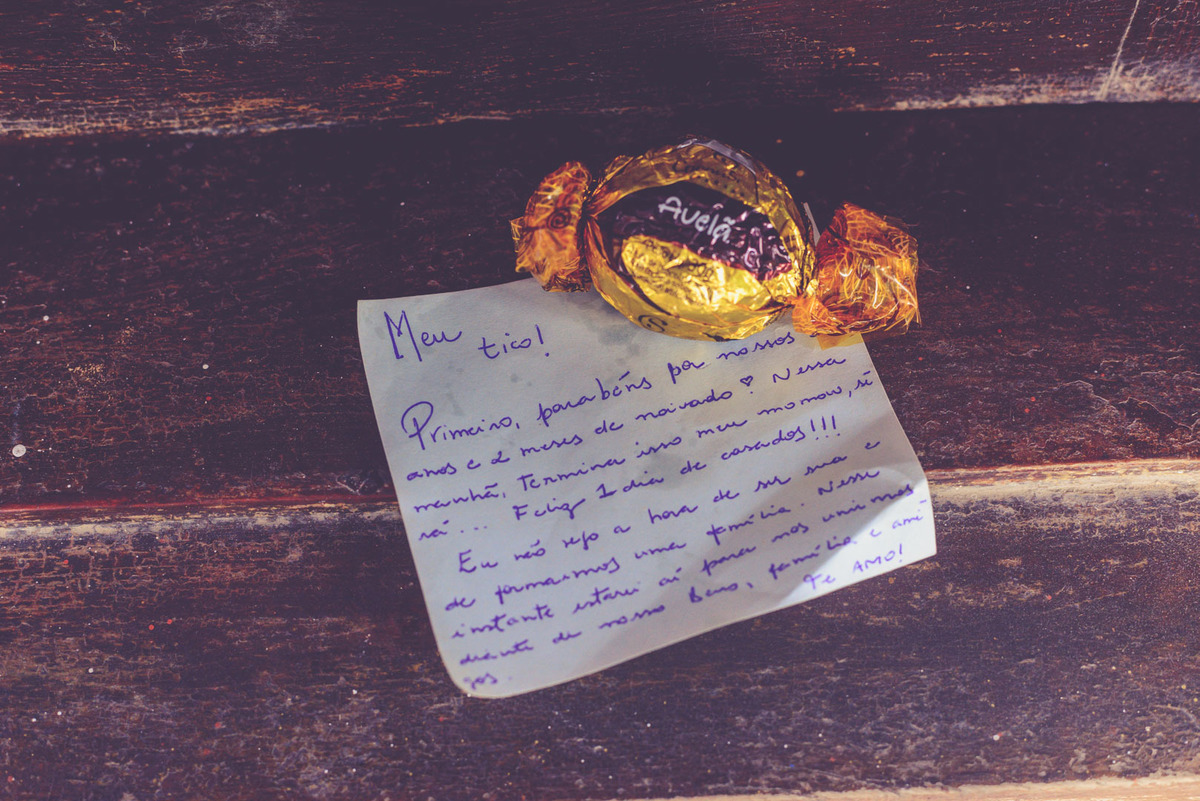 Avelã
Meu tico!
Primeiro, parabéns por nossos
anos e 2 meses de noivado! Nessa
manhã, termina isso meu momow, se
rá... Feliz 1 dia de casados!!!
Eu não vejo a hora de ser sua e
de formarmos uma família. Nesse
instante estarei aí para nos unirmos
diante de nosso Deus, família e ami
gos. Te AMO!